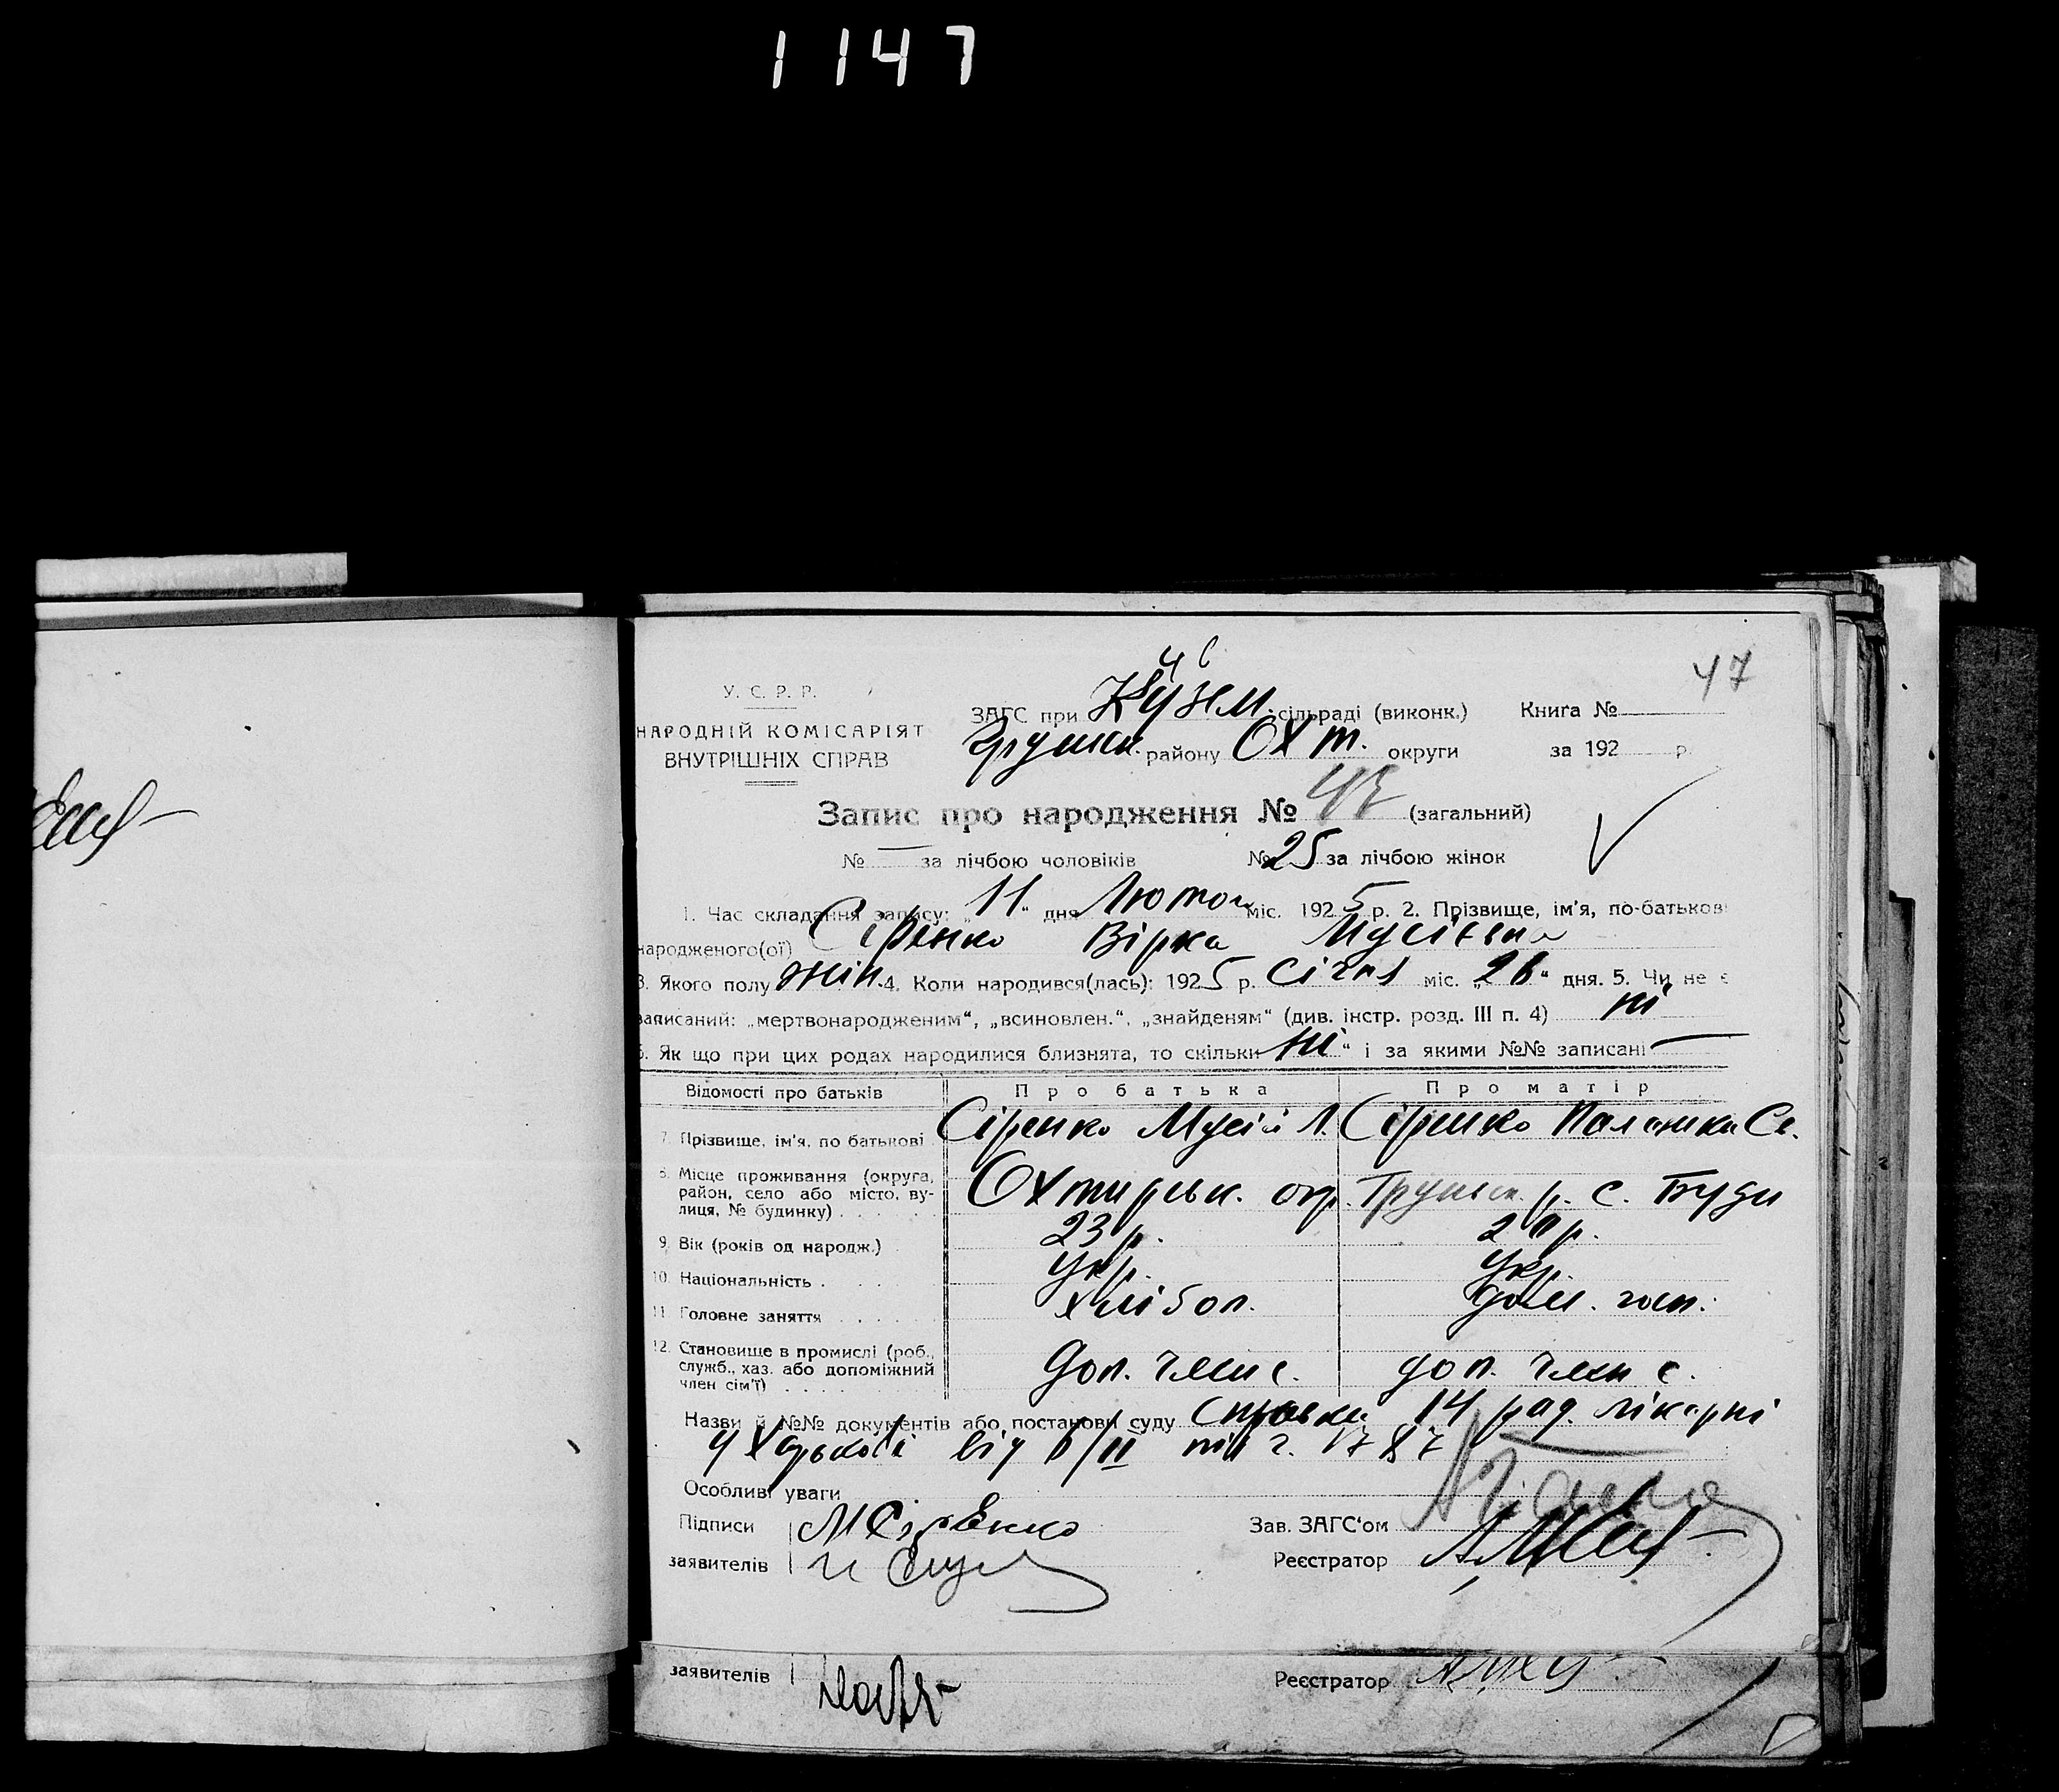 1147
47
У. С. Р. Р.
НАРОДНІЙ КОМІСАРІЯТ
ВНУТРІШНІХ СПРАВ
ЗАГС при Кузем. сільраді (виконк.) Книга №
району Охт. округи за 192 р.
Запис про народження № 47 (загальний)
№ — за лічбою чоловіків № 25 за лічбою жінок
1. Час складання запису: „11“ дня Лютого міс. 1925 р. 2. Прізвище, ім'я, по-батькові
народженого(ої) Сіренко Вірка Мусіевна
3. Якого полу жін. 4. Коли народився(лась): 1925 р. Січня міс. „26“ дня. 5. Чи не є
записаний: „мертвонародженим“, „всиновлен.“, „знайденям“ (див. інстр. розд. III п. 4) ні
6. Як що при цих родах народилися близнята, то скільки ні“ і за якими №№ записані —
Відомості про батьків Про батька Про матір
7. Прізвище, ім'я, по батькові Сіренко Мусій Л. Сіренко Палажка Се.
8. Місце проживання (округа, район, село або місто, вулиця, № будинку) Охтирськ. окр. Груньск. р. с. Буди
9. Вік (років од народж.) 23 р.
10. Національність Укр. Укр.
11. Головне заняття хлібоп. дом. госп.
12. Становище в промислі (роб., служб., хаз. або допоміжний член сім'ї) доп. член с. доп. член с.
Назви й №№ документів або постанови суду Справка 14 рад. лікарні
у Харькові від 6/II
Особливі уваги
Підписи МСіренко Зав. ЗАГС'ом
заявителів Реєстратор
заявителів Реєстратор